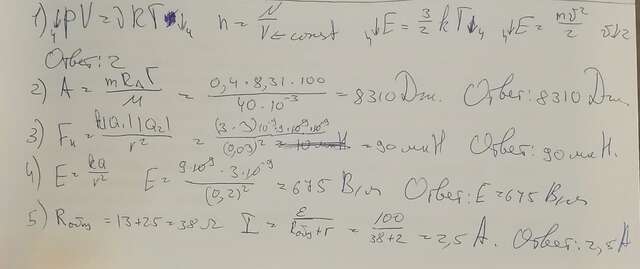 1) ₄↓pV = νkT↓₄ n = N/V ← const ₄↓E = 3/2 kT↓₄ ₄↓E = mv²/2 v↓2
Ответ: 2
2) A = mRΔT/M = 0,4·8,31·100/40·10⁻³ = 8310 Дж. Ответ: 8310 Дж.
3) Fк = k|q₁||q₂|/r² = (3·3)10⁻⁹·9·10⁹·10⁻⁹/(0,03)² = 90 мкН Ответ: 90 мкН.
4) E = kq/r² E = 9·10⁹·3·10⁻⁹/(0,2)² = 675 В/м Ответ: E = 675 В/м
5) Rобщ = 13+25 = 38 Ω I = ε/Rобщ+r = 100/38+2 = 2,5 А. Ответ: 2,5 А